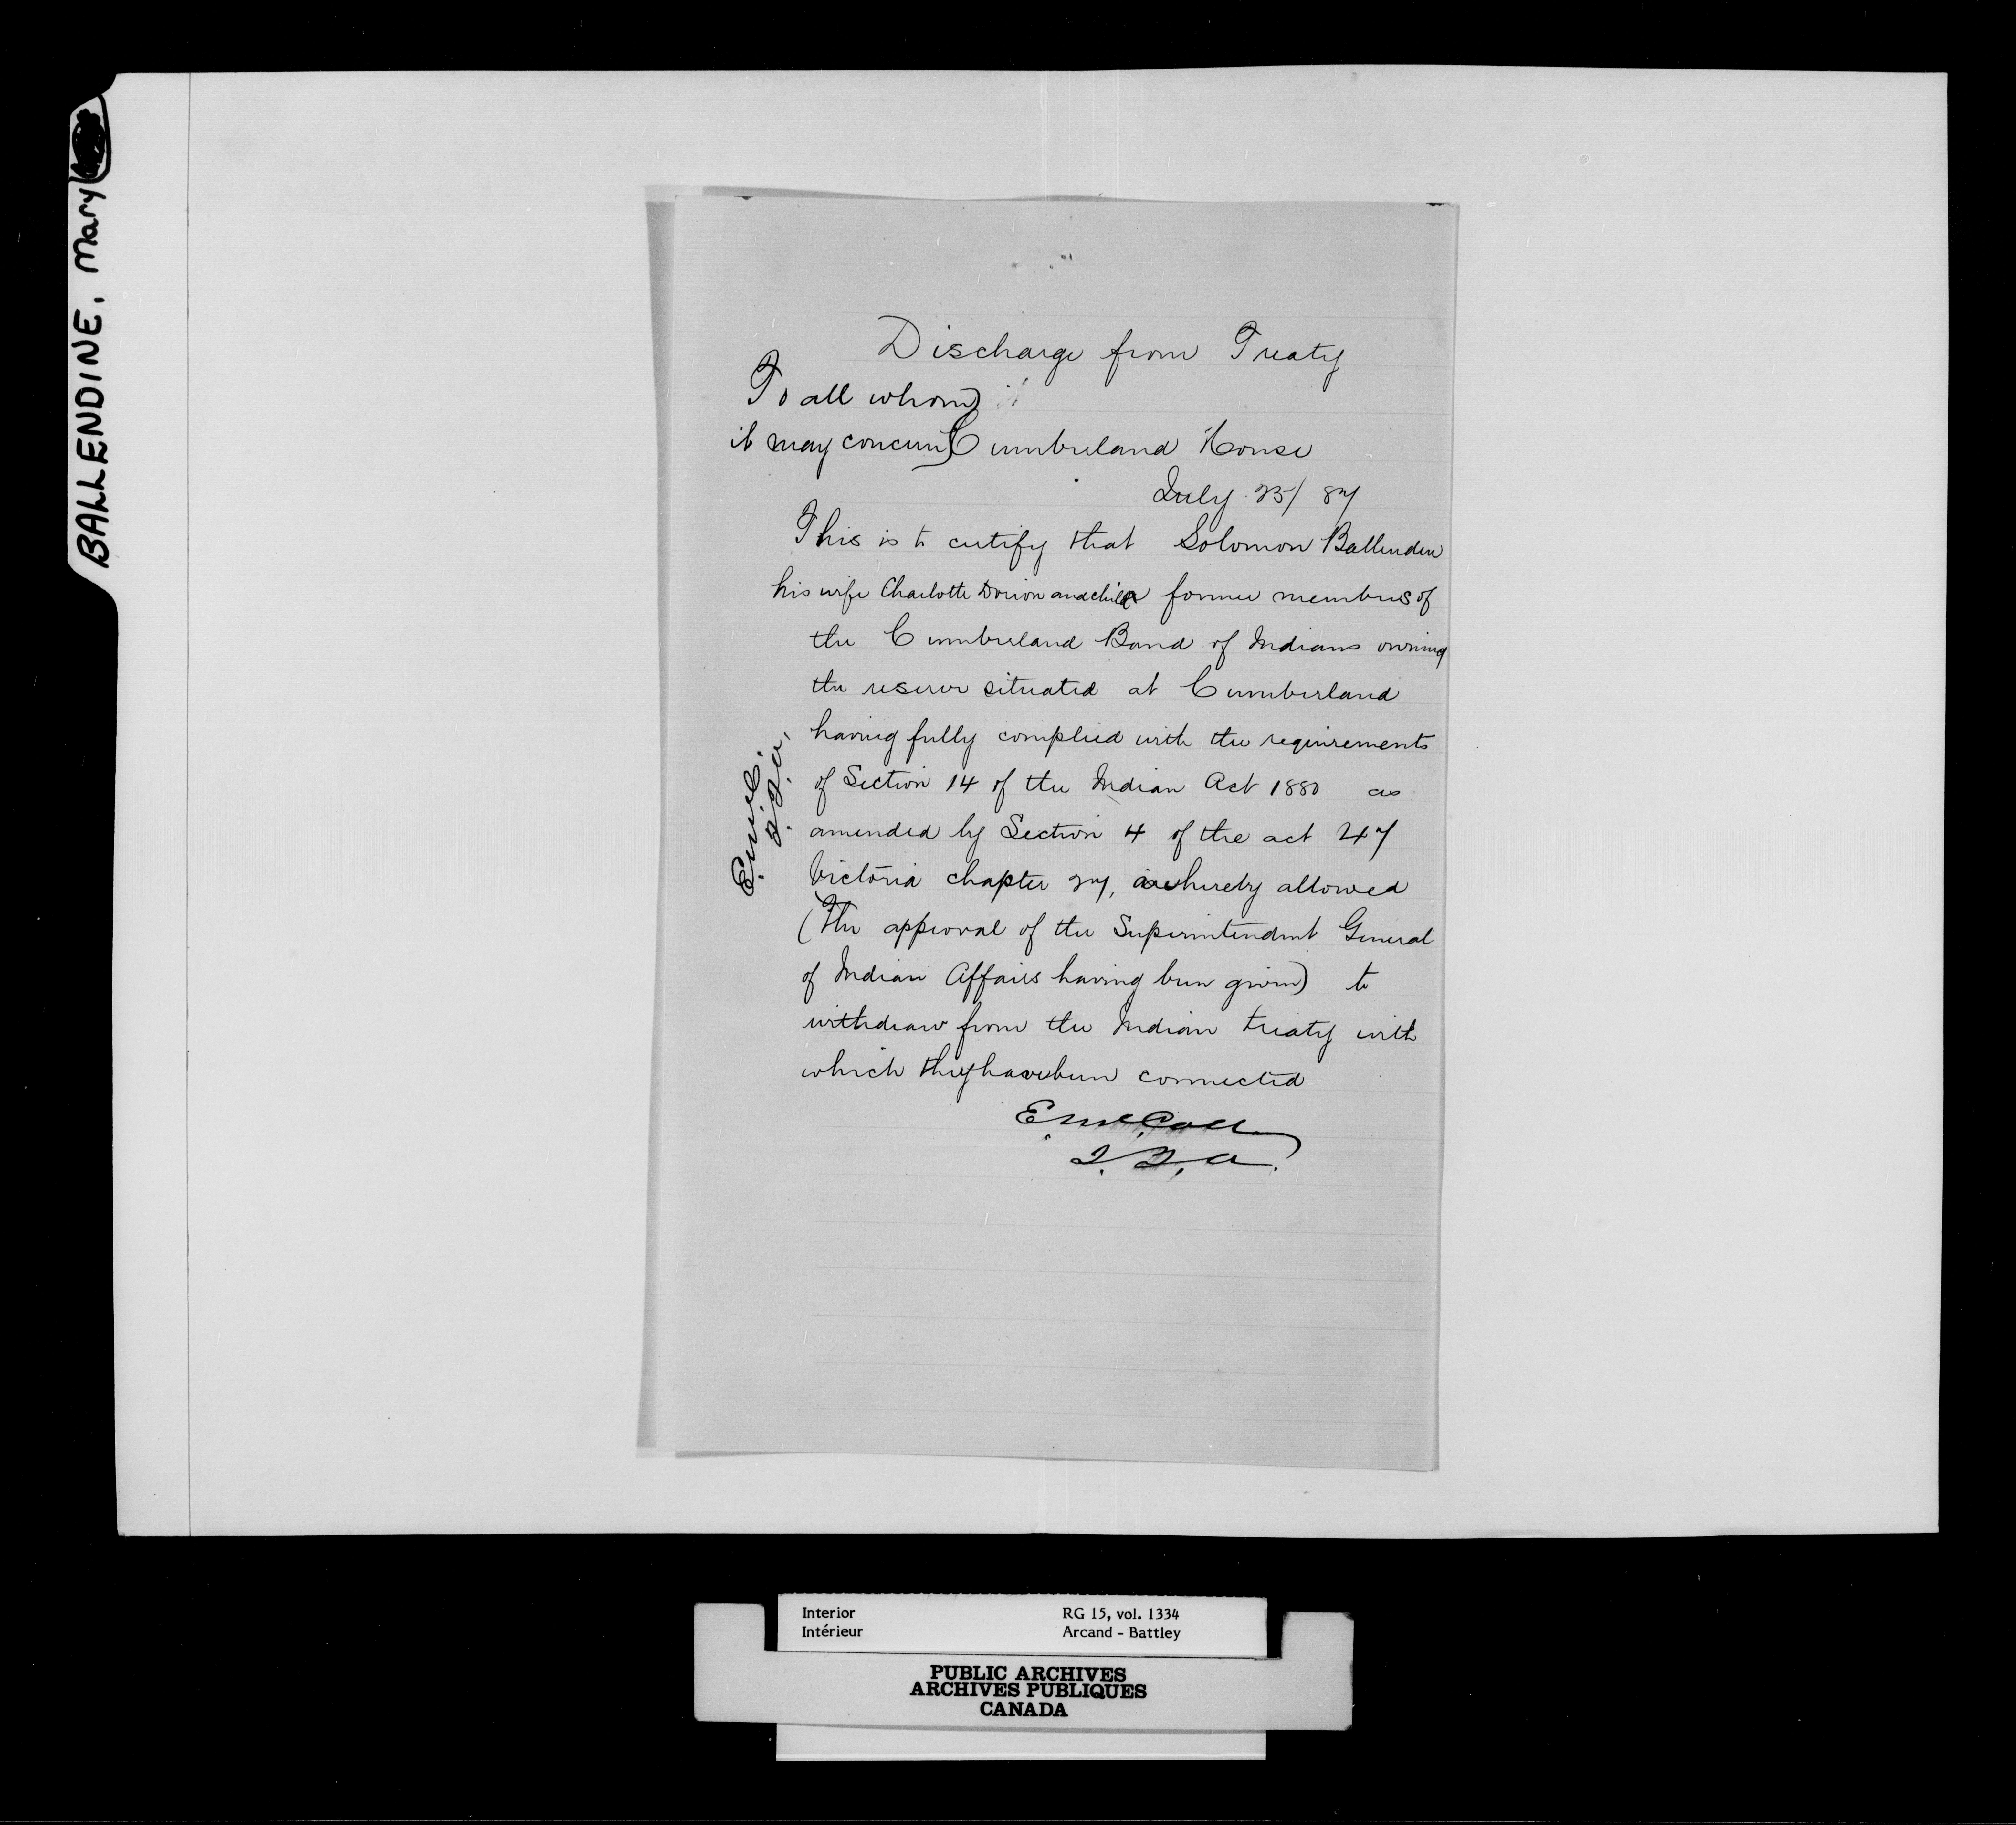 BALLENDINE, Mary
Discharge from Treaty
To all whom
it may concern } Cumberland House
July 25/87
This is to certify that Solomon Ballenden
his wife Charlotte Dorion and child former members of
the Cumberland Band of Indians owning
the reserve situated at Cumberland
having fully complied with the requirements
of Section 14 of the Indian Act 1880 as
amended by Section 4 of the act 47
Victoria chapter 27, are hereby allowed
(The approval of the Superintendent General
of Indian Affairs having been given) to
withdraw from the Indian treaty with
which they have been connected
E. McColl
I. I. A.
E. McC.
I. I. A.
Interior RG 15, vol. 1334
Intérieur Arcand - Battley
PUBLIC ARCHIVES
ARCHIVES PUBLIQUES
CANADA